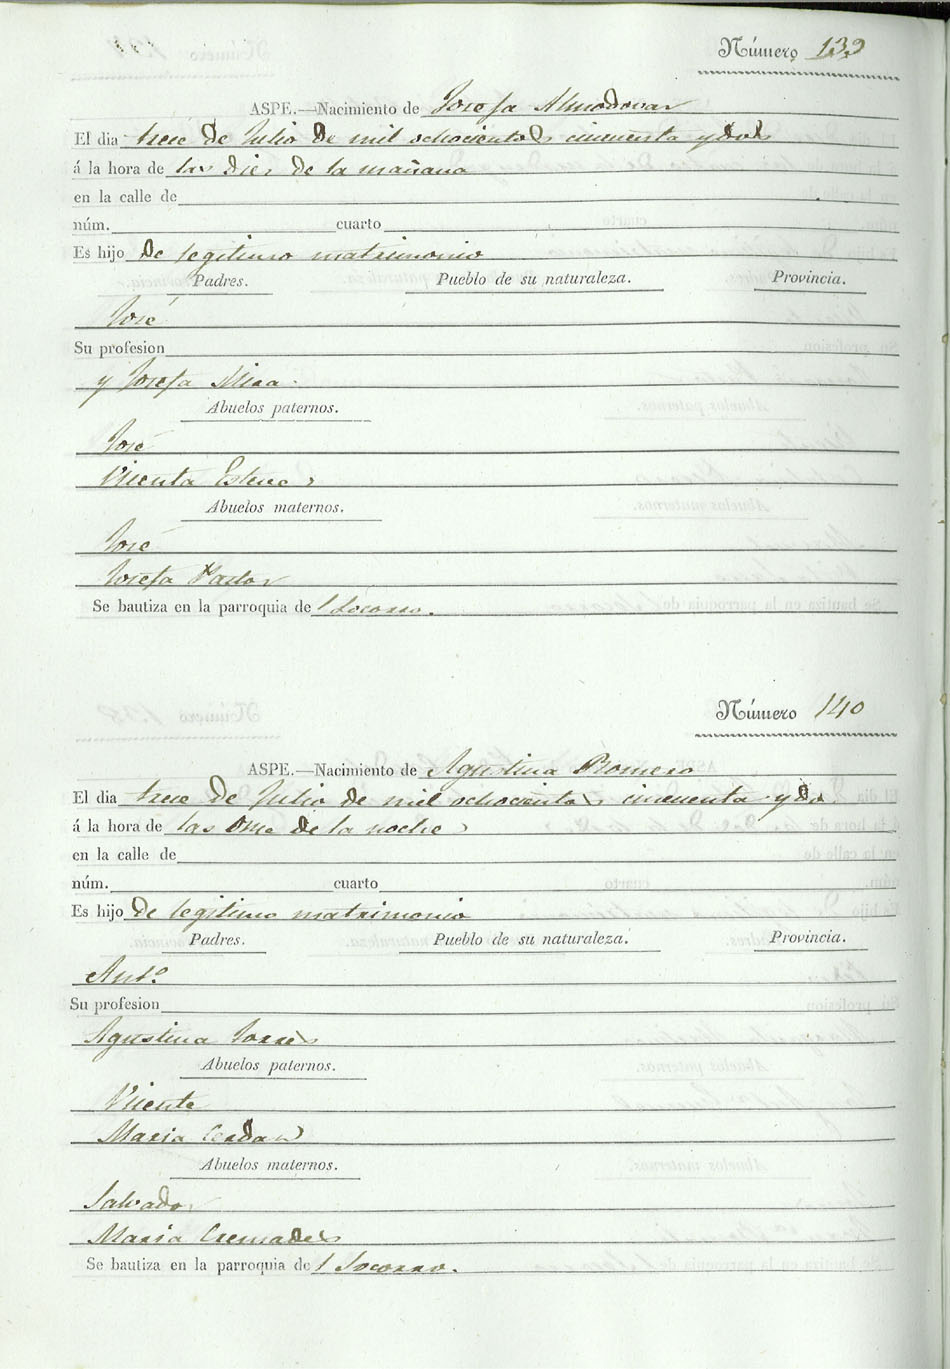 Número 139
ASPE.—Nacimiento de Josefa Almodovar
El dia trece de Julio de mil ochocientos cincuenta y dos
á la hora de las diez de la mañana
en la calle de
núm. cuarto
Es hijo de legitimo matrimonio
Padres. Pueblo de su naturaleza. Provincia.
José
Su profesion
y Josefa Mira.
Abuelos paternos.
José
Vicenta Esteve
Abuelos maternos.
José
Josefa Pastor
Se bautiza en la parroquia del Socorro.
Número 140
ASPE.—Nacimiento de Agustina Romero
El dia trece de Julio de mil ochocientos cincuenta y dos
á la hora de las once de la noche
en la calle de
núm. cuarto
Es hijo de legitimo matrimonio
Padres. Pueblo de su naturaleza. Provincia.
Antº
Su profesion
Agustina Torres
Abuelos paternos.
Vicente
Maria Cerdan
Abuelos maternos.
Salvador
Maria Cremades
Se bautiza en la parroquia del Socorro.